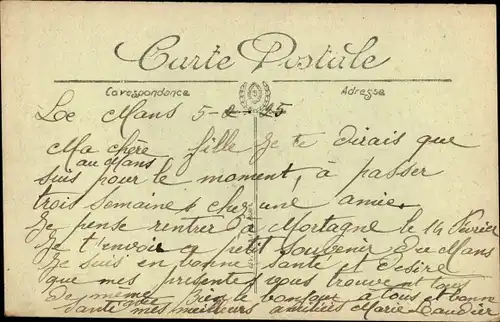 Carte Postale
Correspondance Adresse
Le Mans 5-2-25
Ma chère fille Je te dirais que
au Mans
suis pour le moment, à passer
trois semaines chez une amie.
Je pense rentrer à Mortagne le 14 Février
Je t'envoie ce petit souvenir du Mans
Je suis en bonne santé et désire
que mes présentes vous trouvent tous
de même que bien le bonjour à tous et bonne
santé mes meilleurs amitiés Marie